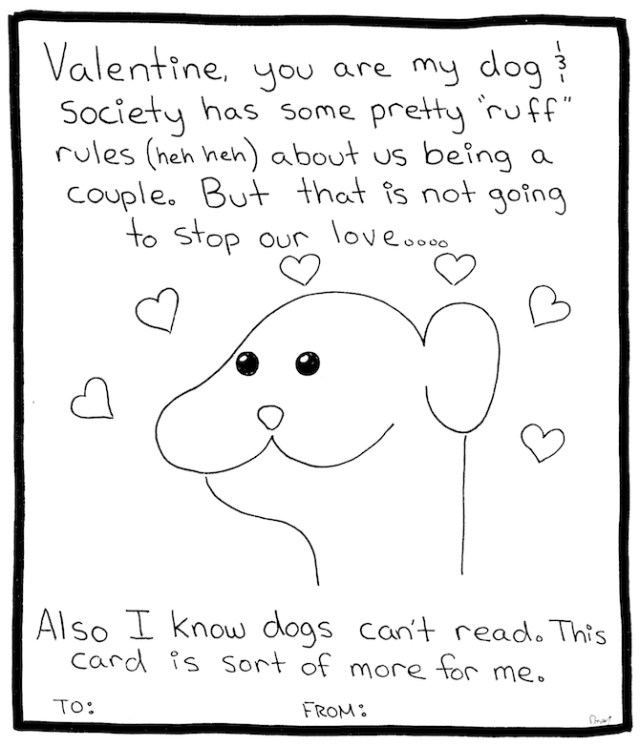 Valentine, you are my dog &
society has some pretty "ruff"
rules (heh heh) about us being a
couple. But that is not going
to stop our love....
Also I know dogs can't read. This
card is sort of more for me.
TO: FROM: